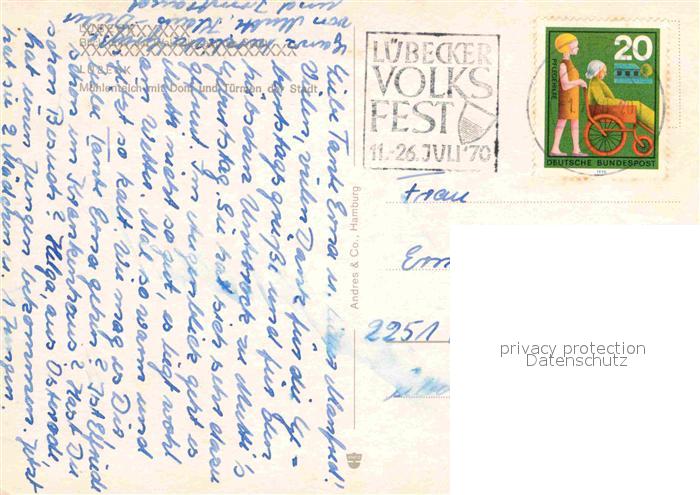 LÜBECK
Mühlenteich mit Dom und Türmen der Stadt
LÜBECKER
VOLKS
FEST
11.-26. JULI '70
20
PFLEGEHILFE
DEUTSCHE BUNDESPOST
1970
Andres & Co., Hamburg
Frau
2251
privacy protection
Datenschutz
Liebe Tante Erna u. Manfred!
vielen Dank für die Ge-
burtstagsgrüße und für den
Unterrock zu Mutti's
Geburtstag. Sie hat sich sehr dazu
gefreut. Im Augenblick geht es
Mutti nicht so gut, es liegt wohl
a. Wetter. Mal so warm und
jetzt so kalt. Wie mag es Dir
liebe Tante Erna gehen? Ist Elfriede
schon im Krankenhaus? Hast Du
schon Besuch? Helga, aus Osterode
hat einen Jungen bekommen. Jetzt
hat sie 2 Mädchen u. 1 Jungen.
Ganz
von Mutti, Klaus
und